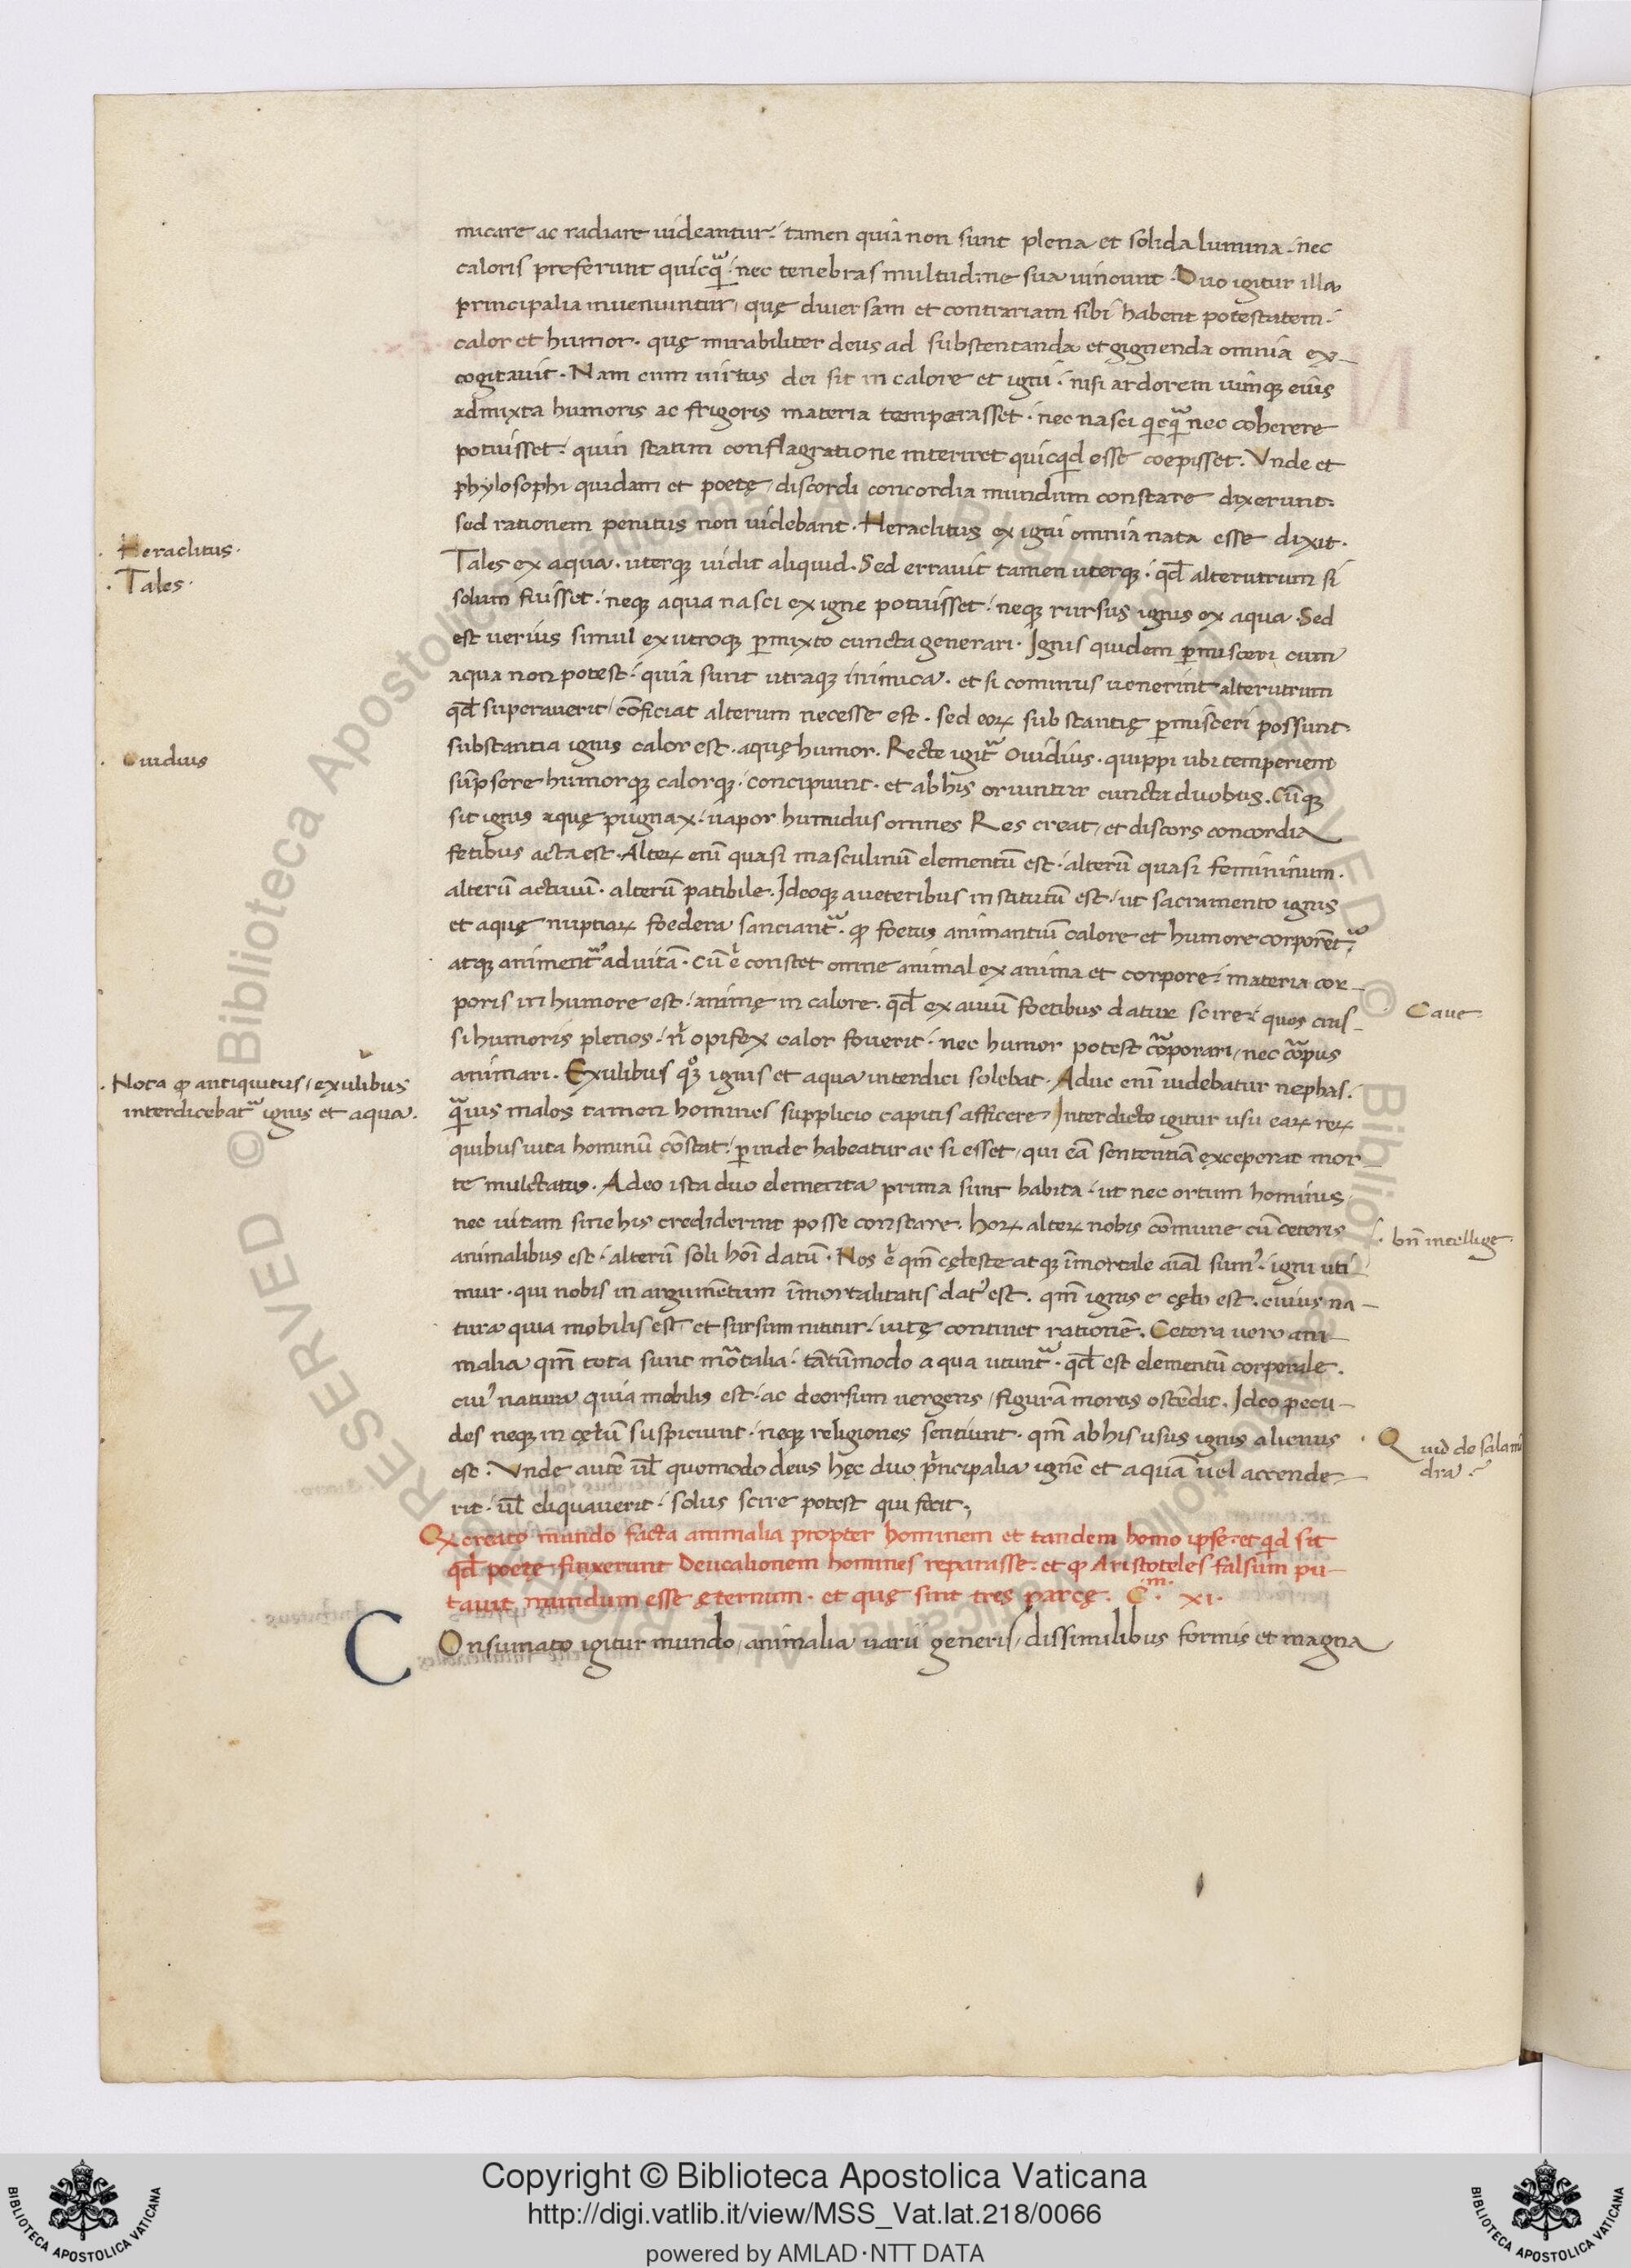 micare ac radiare uideantur. tamen quia non sunt plena et solida lumina. nec
caloris preferunt quicꝗᷓ. nec tenebras multudine sua uincunt. Duo igitur illa
principalia inueniuntur, quę diuersam et contrariam sibi habent potestatem.
calor et humor. quę mirabiliter deus ad substentanda et gignenda omnia ex-
cogitauit. Nam cum uirtus dei sit in calore et igni. nisi ardorem uimqꝫ eius
admixta humoris ac frigoris materia temperasset. nec nasci qicꝗᷓ nec coherere
potuisset. quin statim conflagratione interiret quicqd esse coepisset. Vnde et
phylosophi quidam et poetę, discordi concordia mundum constare dixerunt.
sed rationem penitus non uidebant. Heraclitus ex igni omnia nata esse dixit.
Tales ex aqua. uterqꝫ uidit aliquid. Sed errauit tamen uterqꝫ. qđ alterutrum si
solum fuisset. neqꝫ aqua nasci ex igne potuisset. neqꝫ rursus ignis ex aqua. Sed
est uerius simul ex utroqꝫ ꝑmixto cuncta generari. Ignis quidem ꝑmisceri cum
aqua non potest. quia sunt utraqꝫ inimica. et si cominus uenerint alterutrum
qđ superauerit, cōficiat alterum necesse est. sed eoꝝ substantię ꝑmisceri possunt.
substantia ignis calor est. aquę humor. Recte igitᷓ Ouidius. quippi ubi temperiem
sūpsere humorqꝫ calorqꝫ. concipiunt. et ab his oriuntur cuncta duobus. Cūqꝫ
sit ignis aquę pugnax. uapor humidus omnes Res creat, et discors concordia
fetibus acta est. Alteꝝ enī quasi masculinū elementū est. alterū quasi femininum.
alterū actiuū. alterū patibile. Ideoqꝫ a ueteribus institutū est. ut sacramento ignis
et aquę nuptiaꝝ foedera sanciantᷓ. ꝙ foetus animantiū calore et humore corporētᷓ,
atqꝫ animentᷓ ad uitā. Cū è constet omne animal ex anima et corpore. materia cor-
poris in humore est. animę in calore. qđ ex auiū foetibus datur scire. quos cras-
si humoris plenos. nˡ opifex calor fouerit. nec humor potest cōᷓporari, nec cōᷓpus
animari. Exulibus qͦꝫ ignis et aqua interdici solebat. Aduc enī uidebatur nephas.
ꝗᷓuis malos tamen homines supplicio capitis afficere. Interdicto igitur usu eaꝝ reꝝ
quibus uita hominū cōstat. ꝑinde habeatur ac si esset, qui eā sententiā exceperat mor-
te mulctatus. Adeo ista duo elementa prima sunt habita. ut nec ortum hominis
nec uitam sine his crediderint posse constare. hoꝝ alteꝝ nobis cōmune cū ceteris
animalibus est. alterū soli hoī datū. Nos è qm̄ cęleste atqꝫ īmortale aīal sumꝰ. igni uti-
mur. qui nobis in argumētum īmortalitatis datꝰ est. qm̄ ignis e cęlo est. cuius na-
tura quia mobilis est, et sursum nititur. uitę continet rationē. Cetera uero ani-
malia qm̄ tota sunt mōᷓtalia. tātūmodo aqua utuntᷓ. qđ est elementū corporale.
cuiꝰ natura quia mobilis est. ac deorsum uergens, figurā mortis ostēdit. Ideo pecu-
des neqꝫ in cęlum suspiciunt. neqꝫ religiones sentiunt. qm̄ ab his usus ignis alienus
est. Vnde autē ul̄ quomodo deus hęc duo pˈncipalia ignē et aquā uel accende-
rit. ul̄ eliquauerit. solus scire potest qui fecit;
Ex creato mundo facta animalia propter hominem et tandem homo ipse. et qd sit
qđ poetę finxerunt Deucalionem homines reparasse. et ꝙ Aristoteles falsum pu-
tauit mundum esse ęternum. et quę sint tres parcę. C.m. XI.
COnsumato igitur mundo, animalia uarii generis, dissimilibus formis et magna
. Heraclitus.
. Tales.
. Ouidius
. Nota ꝙ antiquitus, exulibus
interdicebatᷓ ignis et aqua.
Caue.
. bn̄ intellige.
. Quid de salamā
dra.
Copyright © Biblioteca Apostolica Vaticana
http://digi.vatlib.it/view/MSS_Vat.lat.218/0066
powered by AMLAD·NTT DATA
BIBLIOTECA APOSTOLICA VATICANA
BIBLIOTECA APOSTOLICA VATICANA